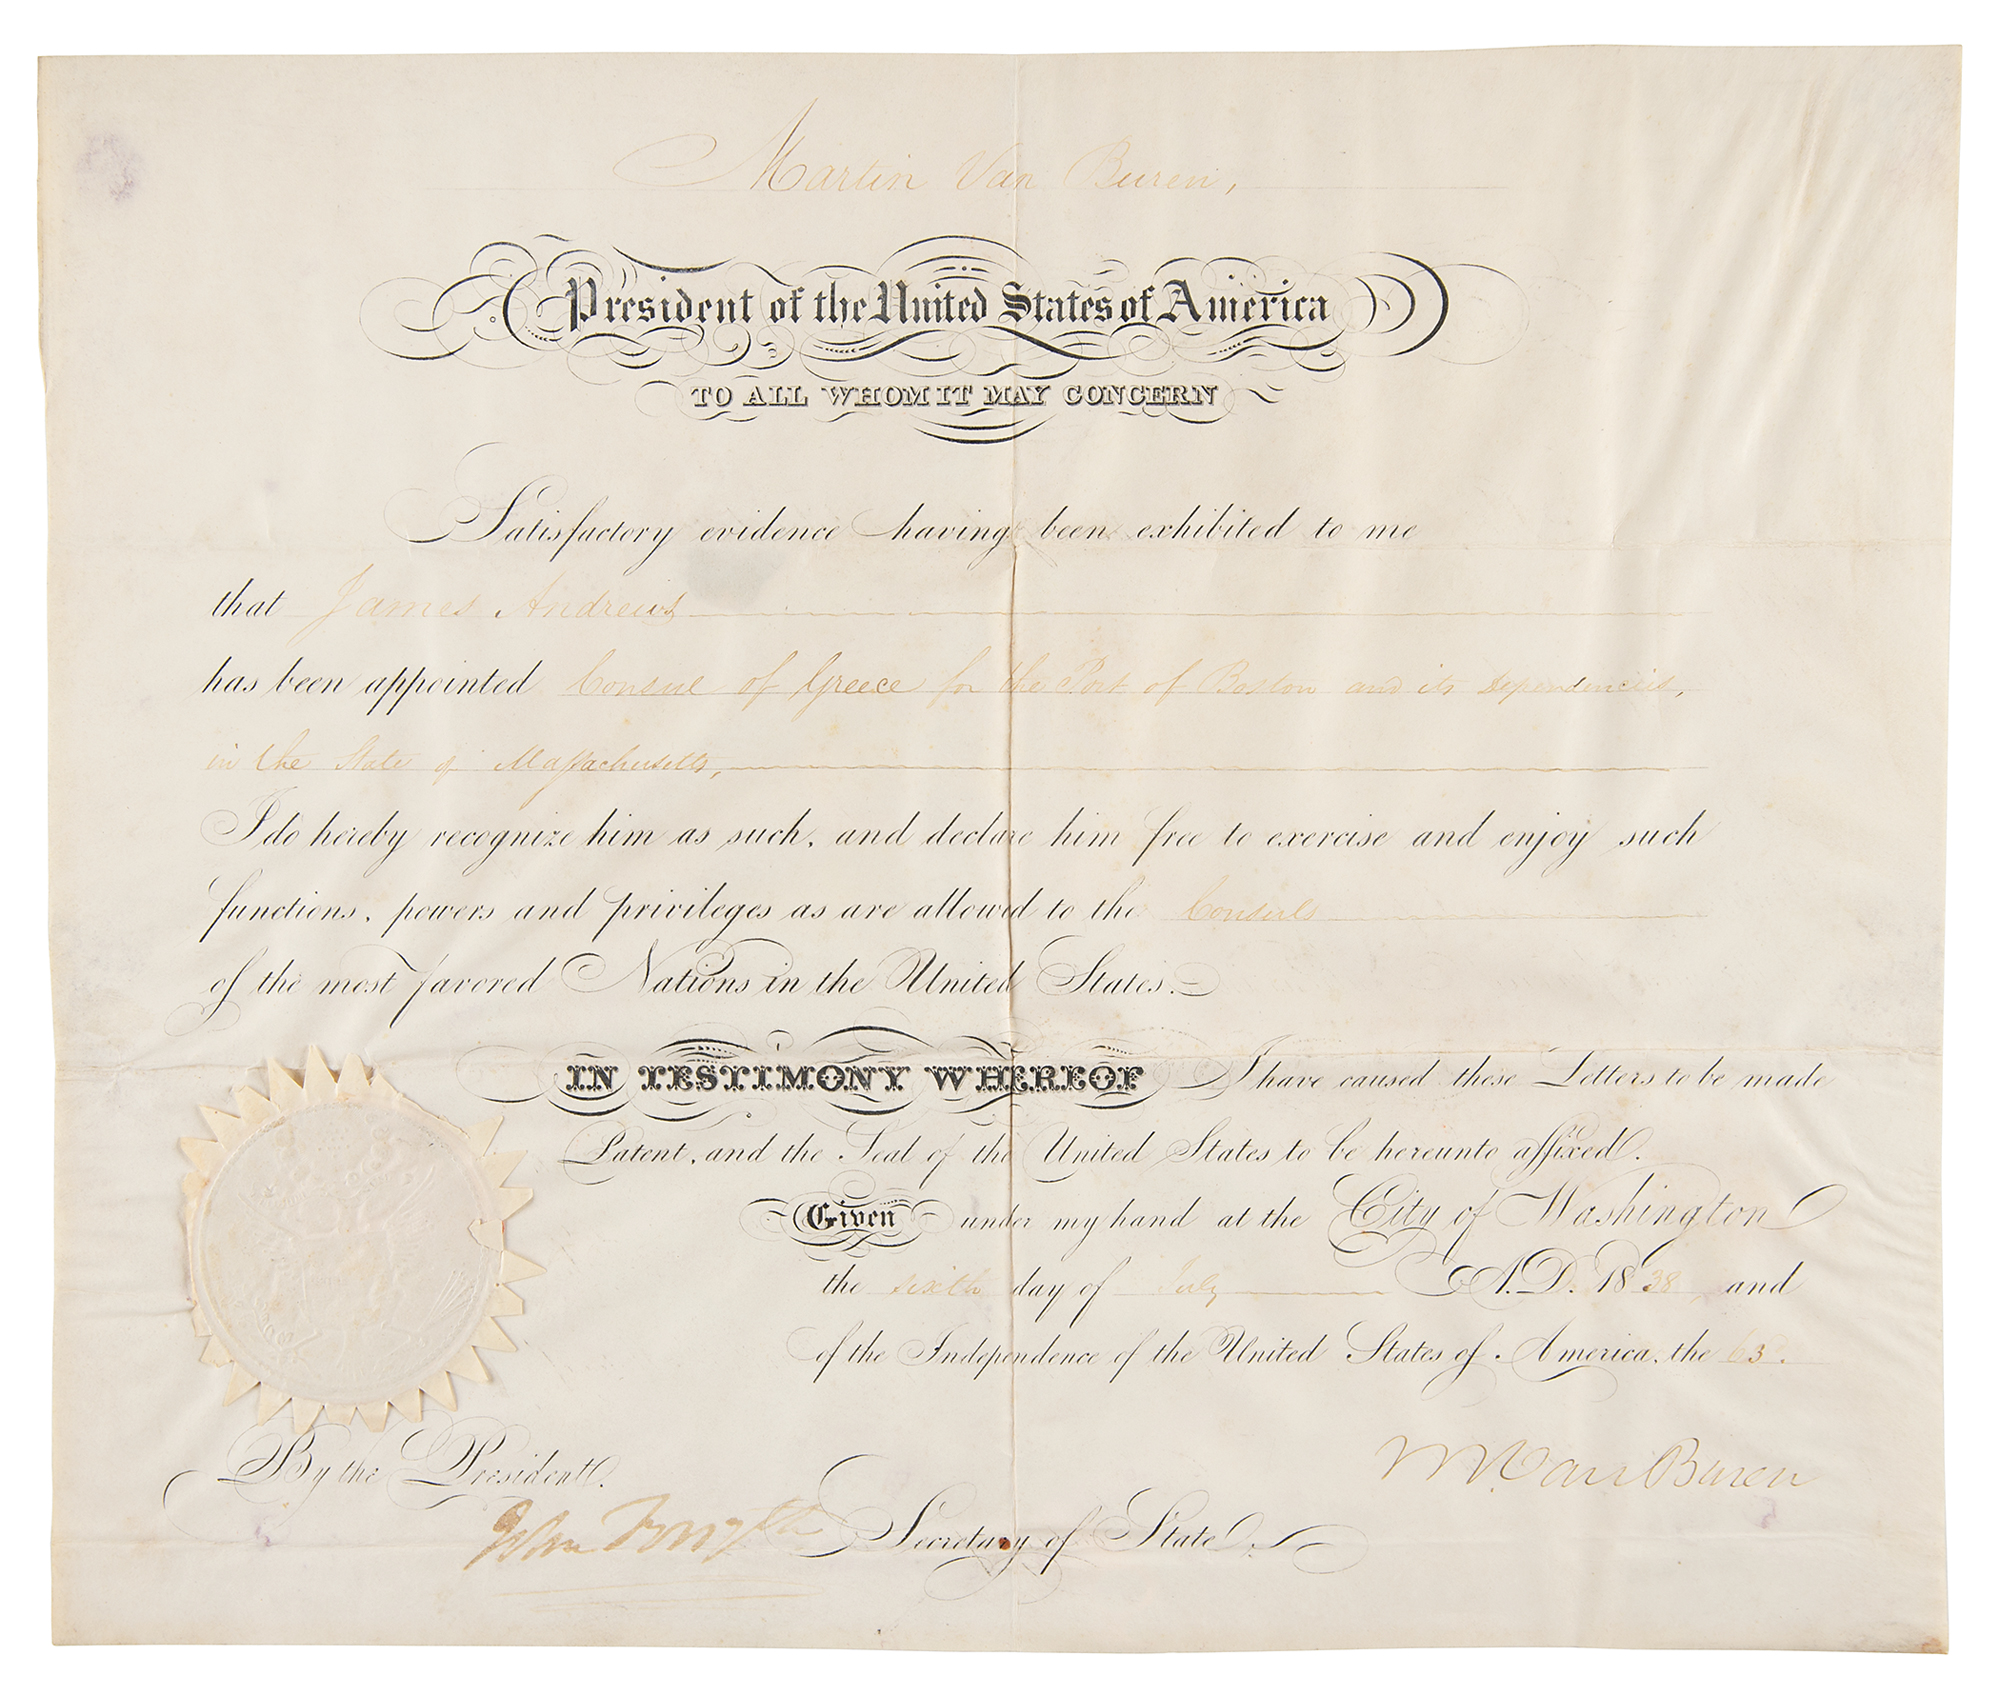 Martin Van Buren,
President of the United States of America
TO ALL WHOM IT MAY CONCERN
Satisfactory evidence having been exhibited to me
that James Andrews
has been appointed Consul of Greece for the Port of Boston and its Dependencies,
in the State of Massachusetts,
I do hereby recognize him as such, and declare him free to exercise and enjoy such
functions, powers and privileges as are allowed to the Consuls
of the most favored Nations in the United States.
IN TESTIMONY WHEREOF I have caused these Letters to be made
Patent, and the Seal of the United States to be hereunto affixed.
Given under my hand at the City of Washington
the sixth day of July A.D. 1838 and
of the Independence of the United States of America, the 63.
M. Van Buren
By the President.
John Forsyth Secretary of State.